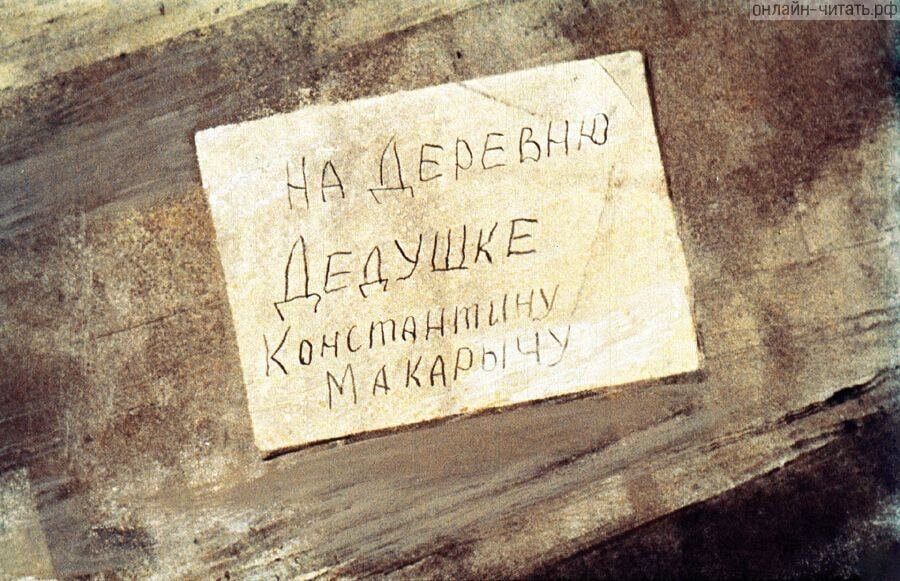 онлайн-читать.рф
НА ДЕРЕВНЮ
ДЕДУШКЕ
КОНСТАНТИНУ
МАКАРЫЧУ